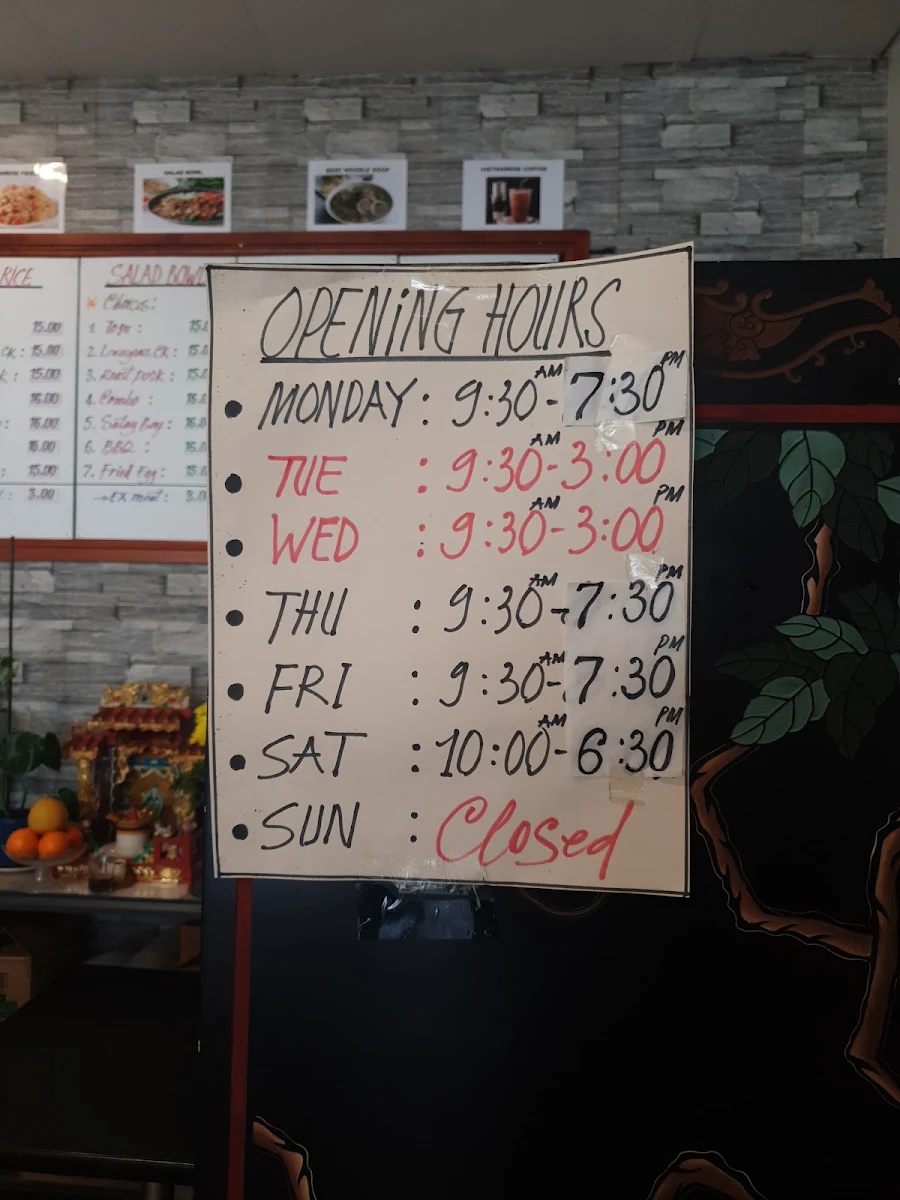 SALAD BOWL
BEEF NOODLE SOUP
VIETNAMESE COFFEE
RICE
15.00
15.00
15.00
16.00
16.00
16.00
15.00
3.00
SALAD BOWL
Choices:
1. Tofu :
2. Lemongrass CK :
3. Roast pork :
4. Combo :
5. Satay Beef :
6. BBQ :
7. Fried Egg :
OPENING HOURS
• MONDAY : 9:30 AM - 7:30 PM
• TUE : 9:30 AM - 3:00 PM
• WED : 9:30 AM - 3:00 PM
• THU : 9:30 AM - 7:30 PM
• FRI : 9:30 AM - 7:30 PM
• SAT : 10:00 AM - 6:30 PM
• SUN : Closed